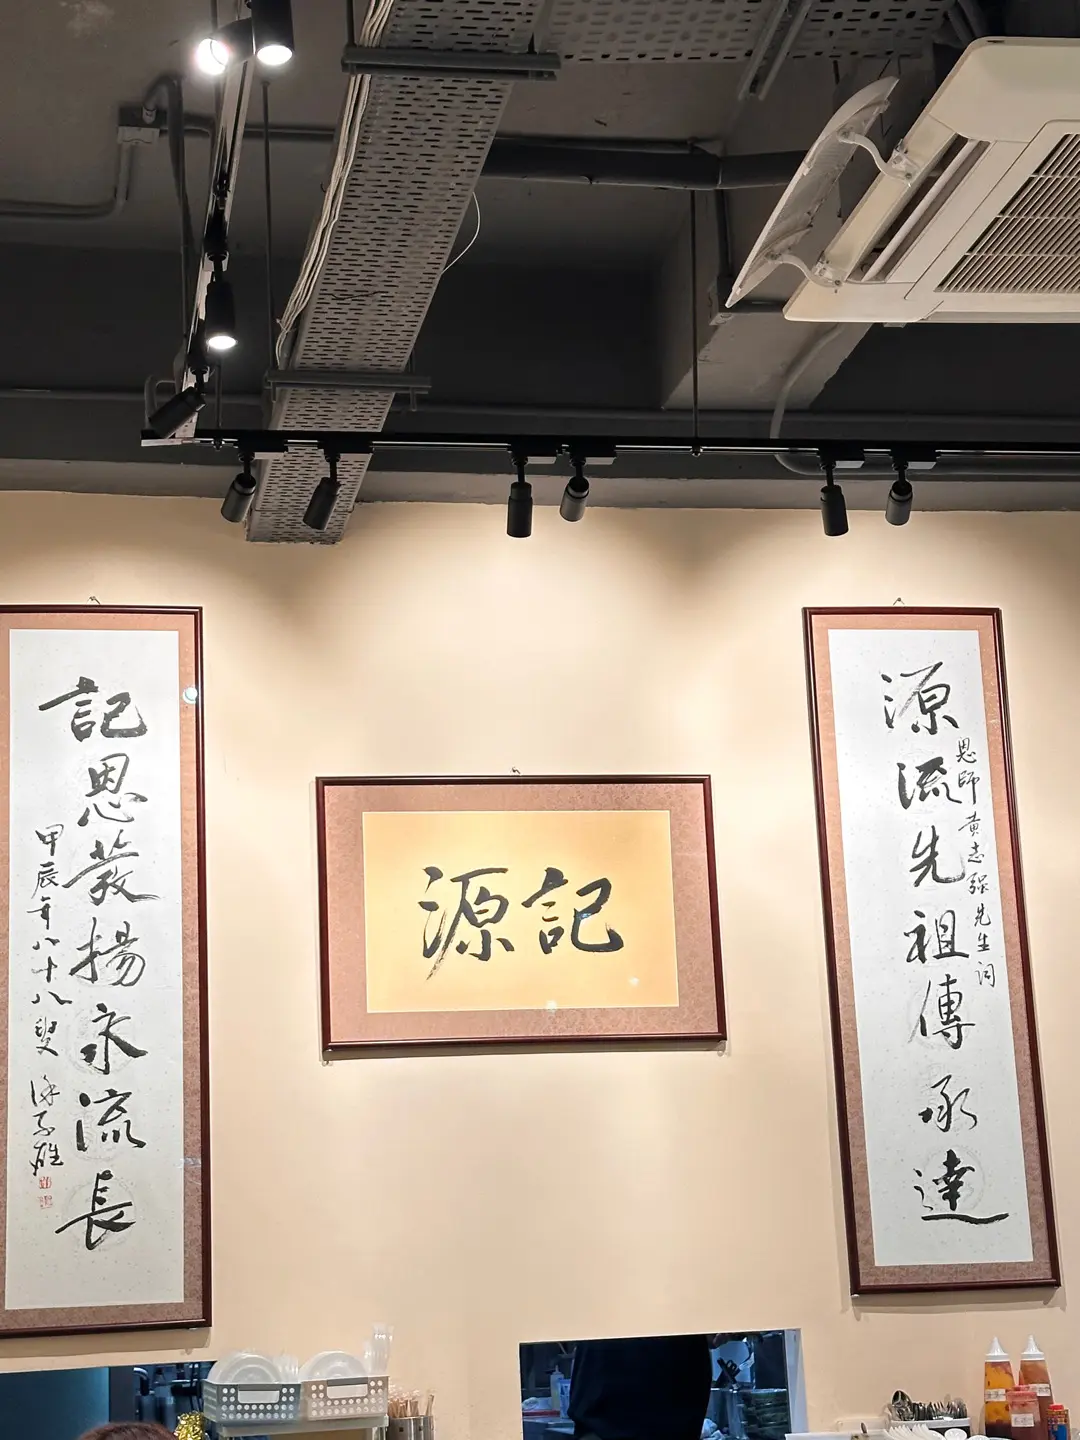 源流先祖傳承達
恩師黄志強先生词
源記
記恩發揚永流長
甲辰年八十八叟